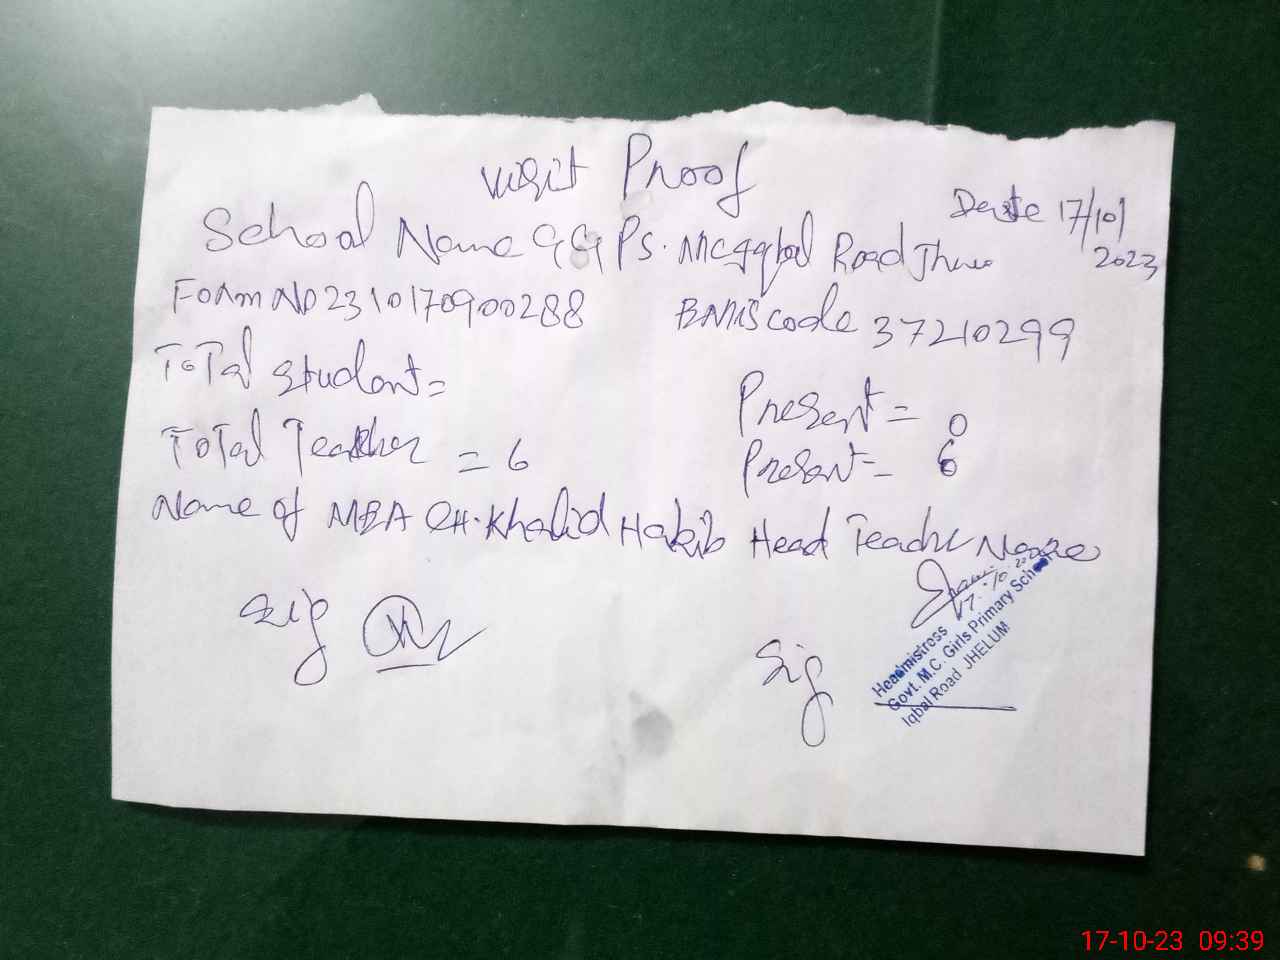 Visit Proof
Date 17/10/
2023
School Name GGPS. MC Iqbal Road
Form No 2310170900288 BMIS code 37210299
Total Student =
Present = 0
Total Teacher = 6 Present = 6
Name of MEA CH. Khalid Habib Head Teacher Name
Sig
Sig
17.10.202
Headmistress
Govt. M.C. Girls Primary School
Iqbal Road JHELUM
17-10-23 09:39